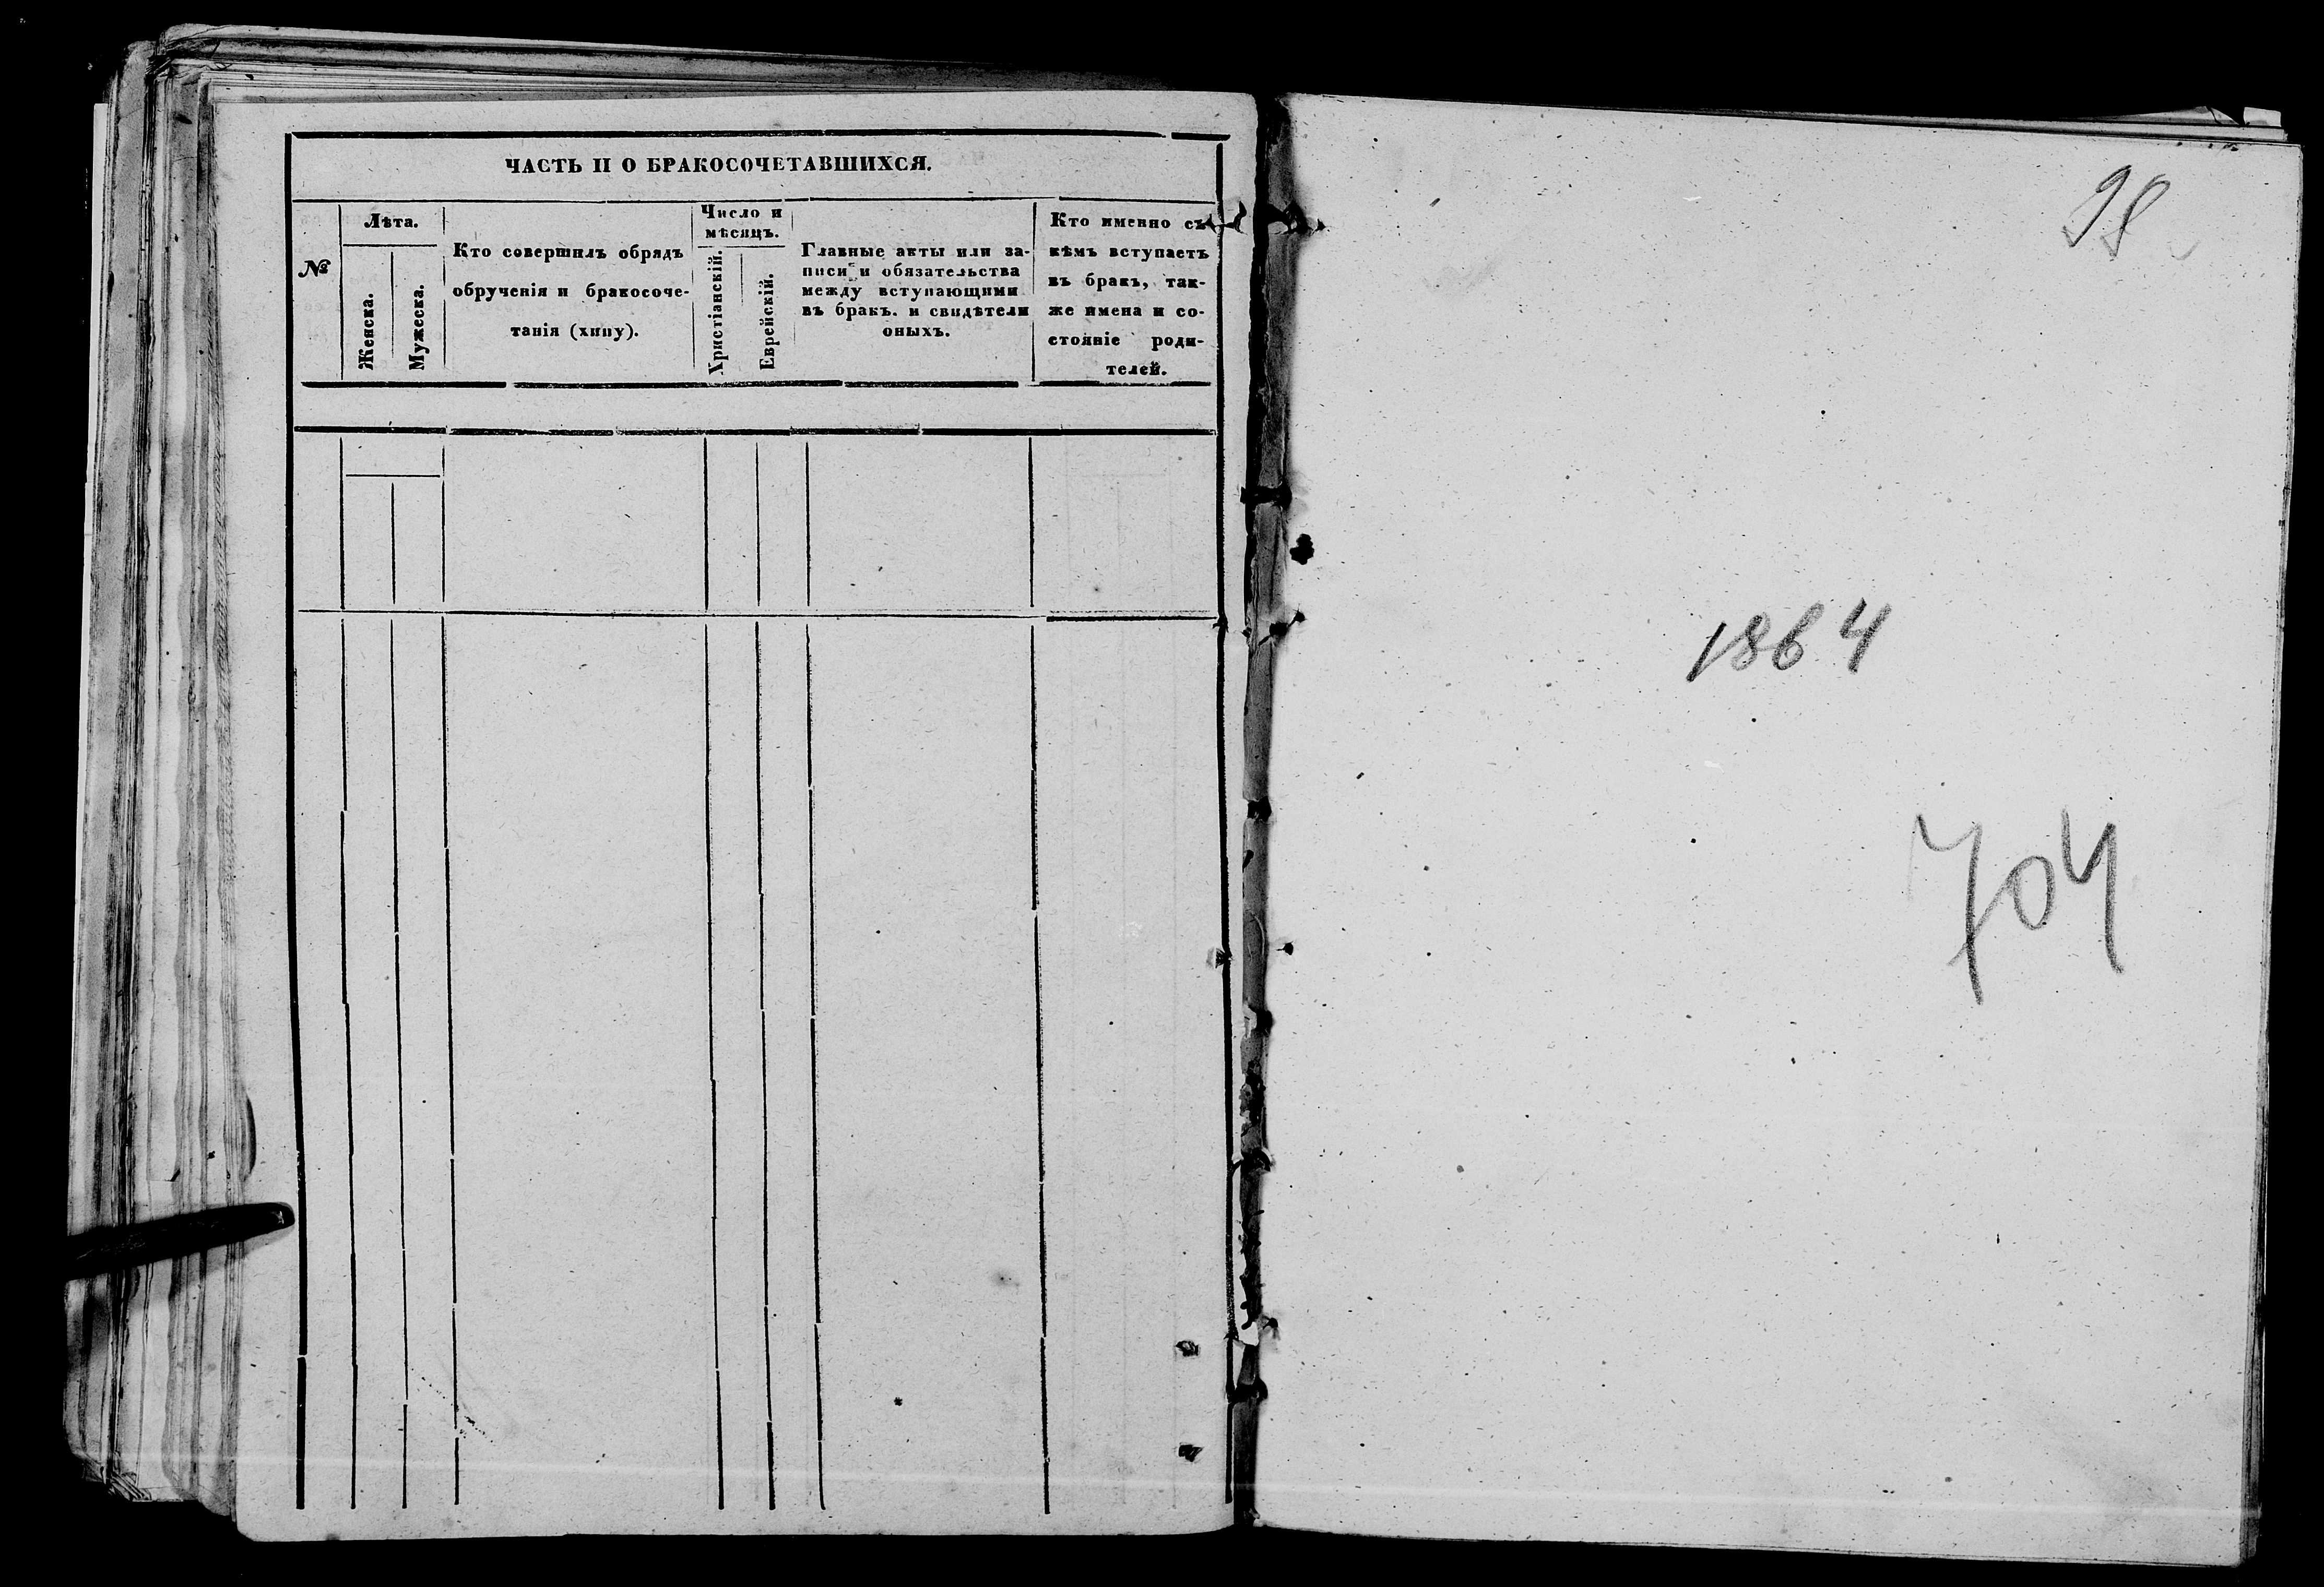 ЧАСТЬ II О БРАКОСОЧЕТАВШИХСЯ.
№
Лѣта.
Женска.
Мужеска.
Кто совершилъ обрядъ
обрученія и бракосоче-
танія (хипу).
Число и
мѣсяцъ.
Христіанскій.
Еврейскій.
Главные акты или за-
писи и обязательства
между вступающими
въ бракъ. и свидѣтели
оныхъ.
Кто именно съ
кѣмъ вступаетъ
въ бракъ, так-
же имена и со-
стояніе роди-
телей.
98
1864
704